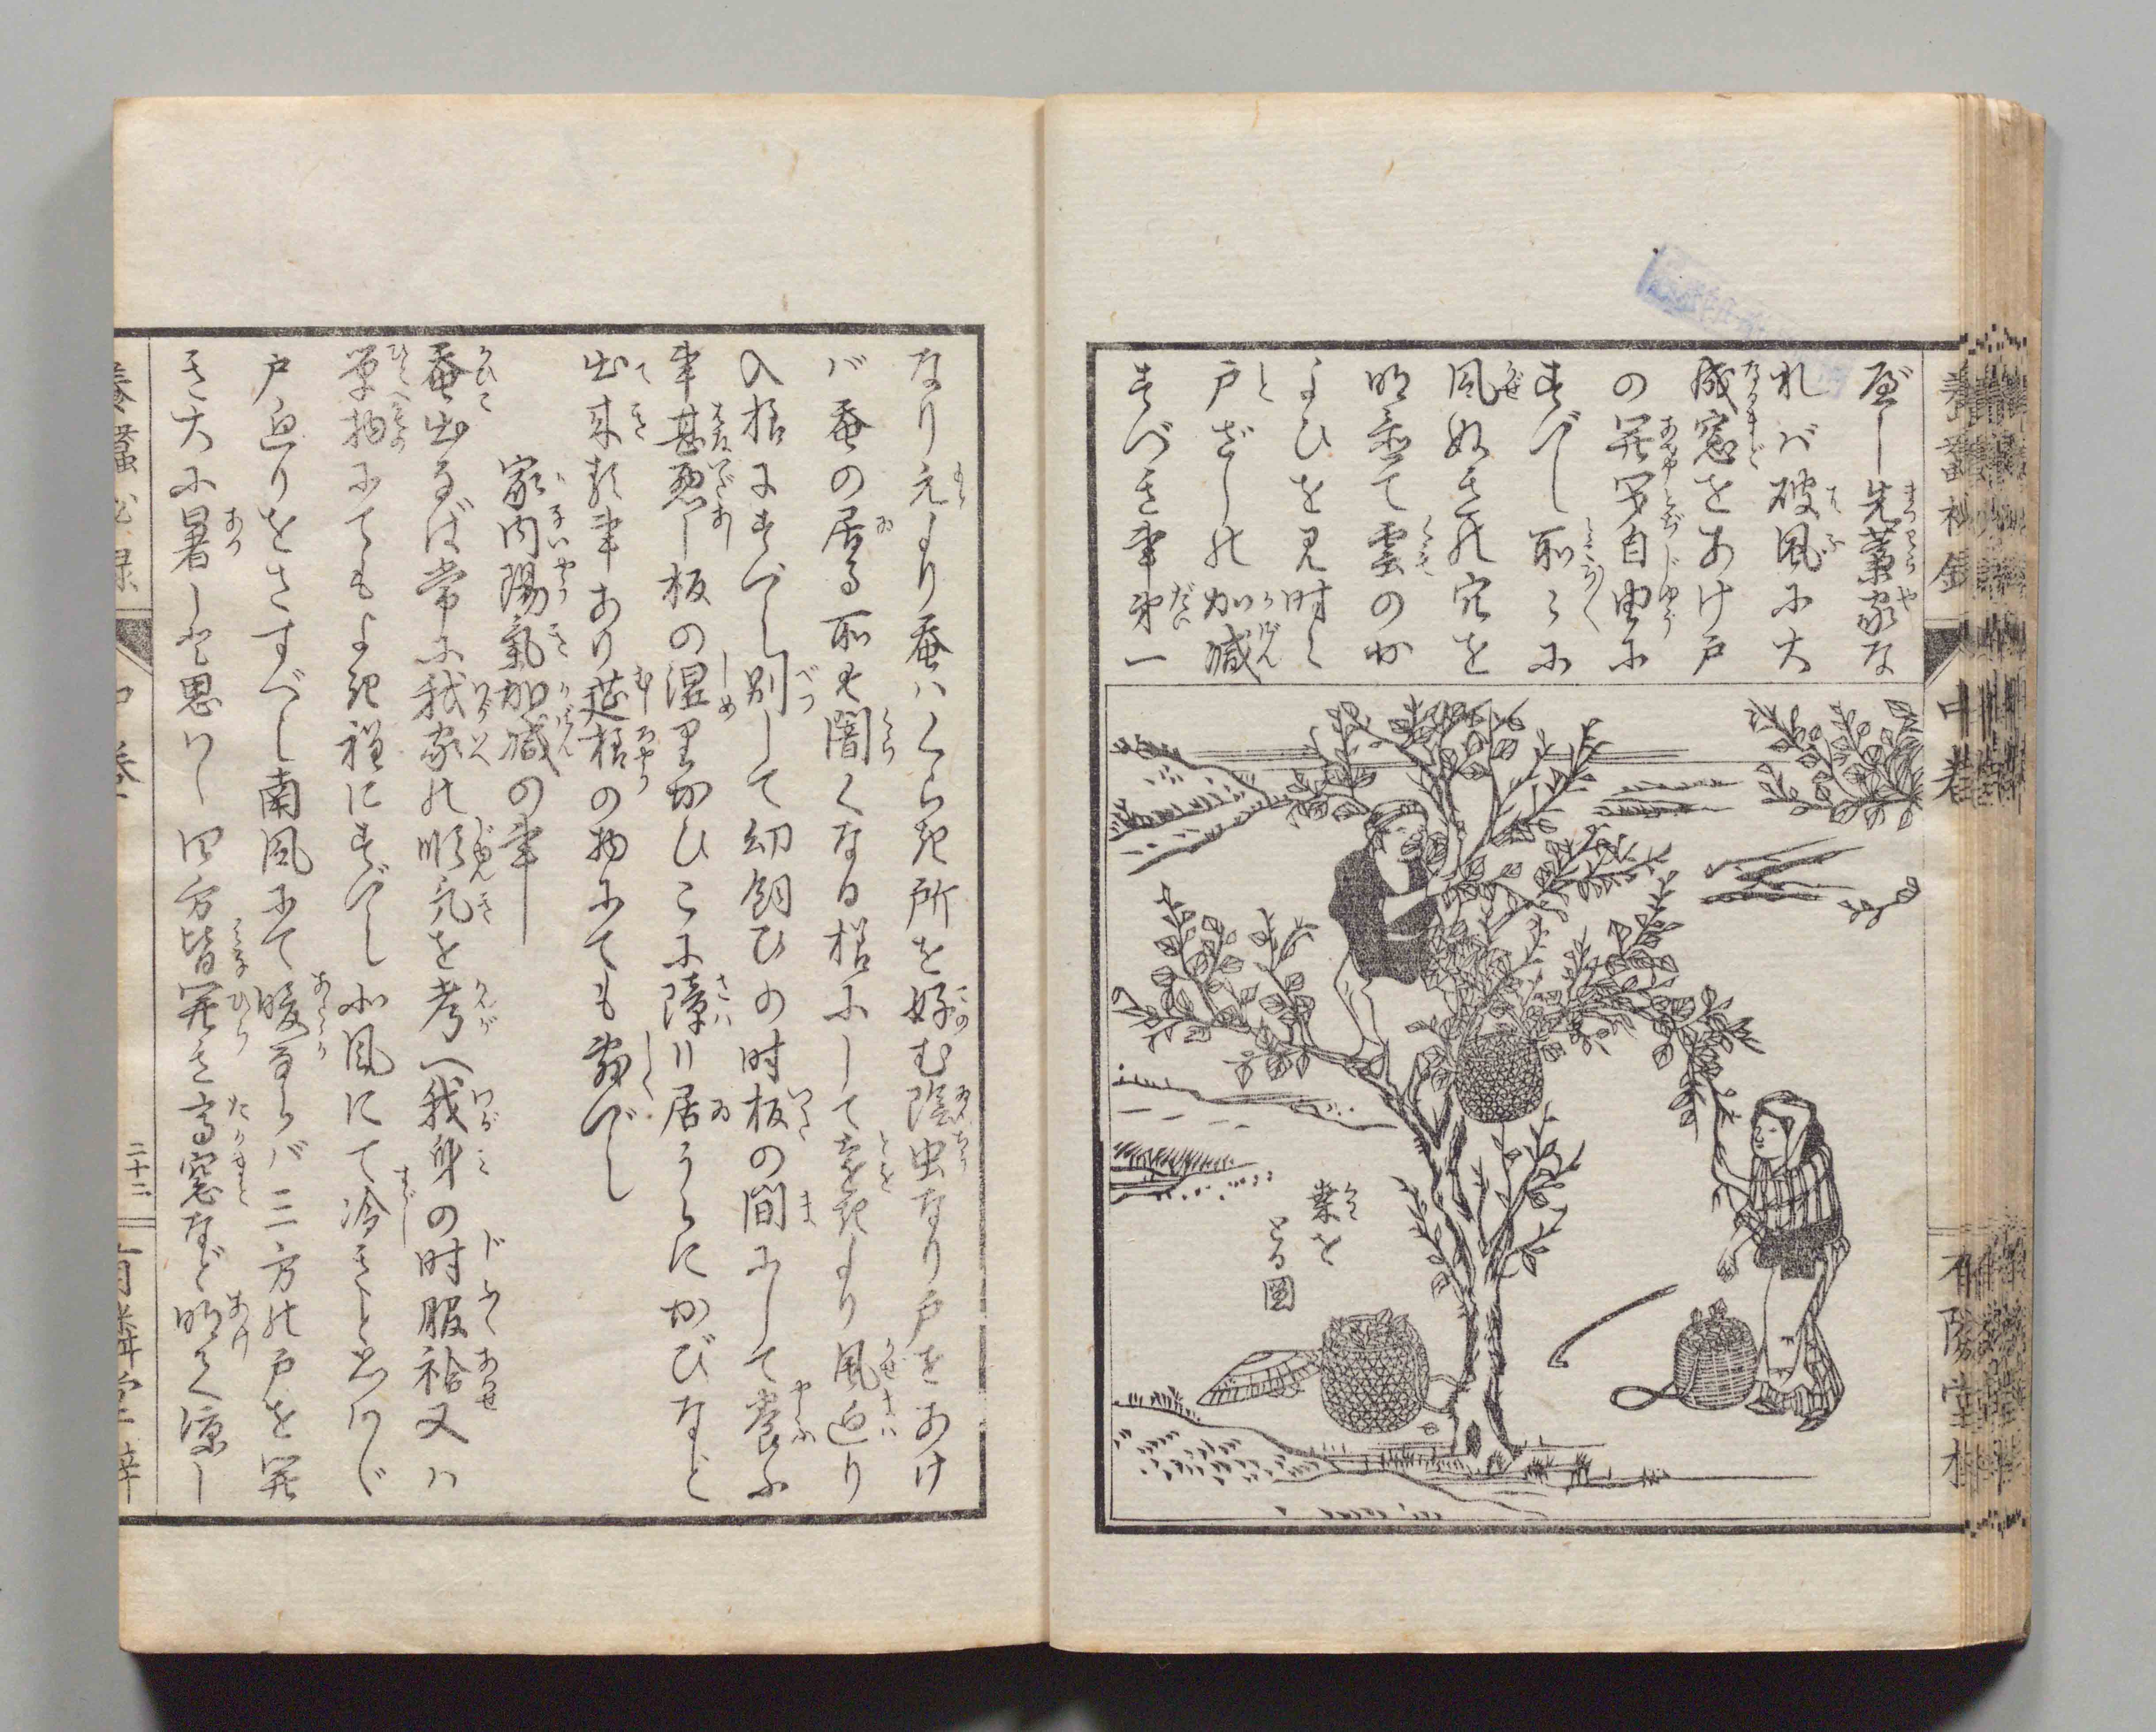 屋し先藁家な
れバ破風に大
成窓をあけ戸
の開閉自由に
すべし所々に
風ぬきの穴を
明置て雲のか
よひを見時々
戸ざしの加減
すべき事第一
桑を
とる図
なり元より蚕ハくらき所を好む陰虫なり戸をあけ
バ蚕の居る所も闇くなる様にして遠きより風廻り
入様にすべし別して幼飼ひの時板の間にして養ふ
事甚悪し板の湿りかひこに障り居うらにかびなど
出来る事あり莚様の物にても敷べし
家内陽氣加減の事
蚕出るば常に我家の順気を考へ我身の時服袷又ハ
単物にてもよき程にすべし北風にて冷きと思はゞ
戸廻りをさすべし南風にて暖ならバ三方の戸を開
き大に暑しと思ハゞ四方皆開き高窓など明て涼し
養蚕秘録
中巻
二十二